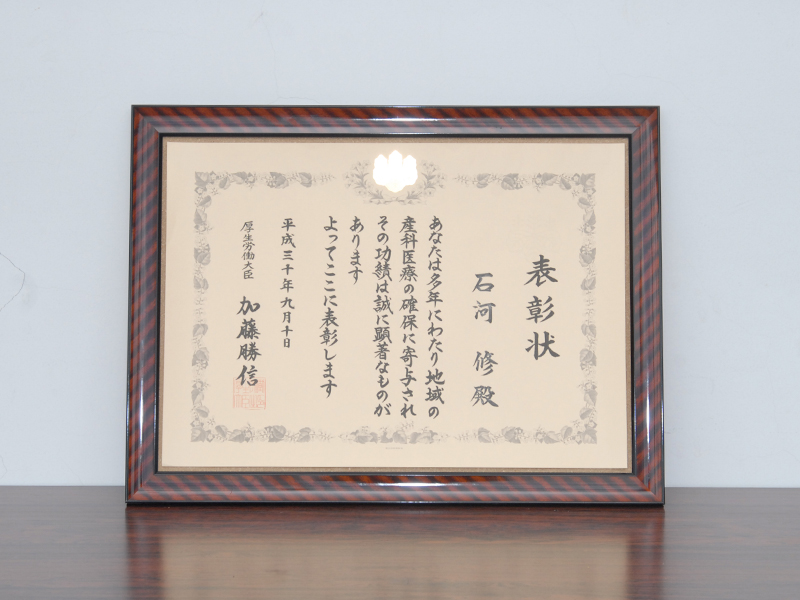 表彰状
石河 修殿
あなたは多年にわたり地域の
産科医療の確保に寄与され
その功績は誠に顕著なものが
あります
よってここに表彰します
平成三十年九月十日
厚生労働大臣 加藤勝信